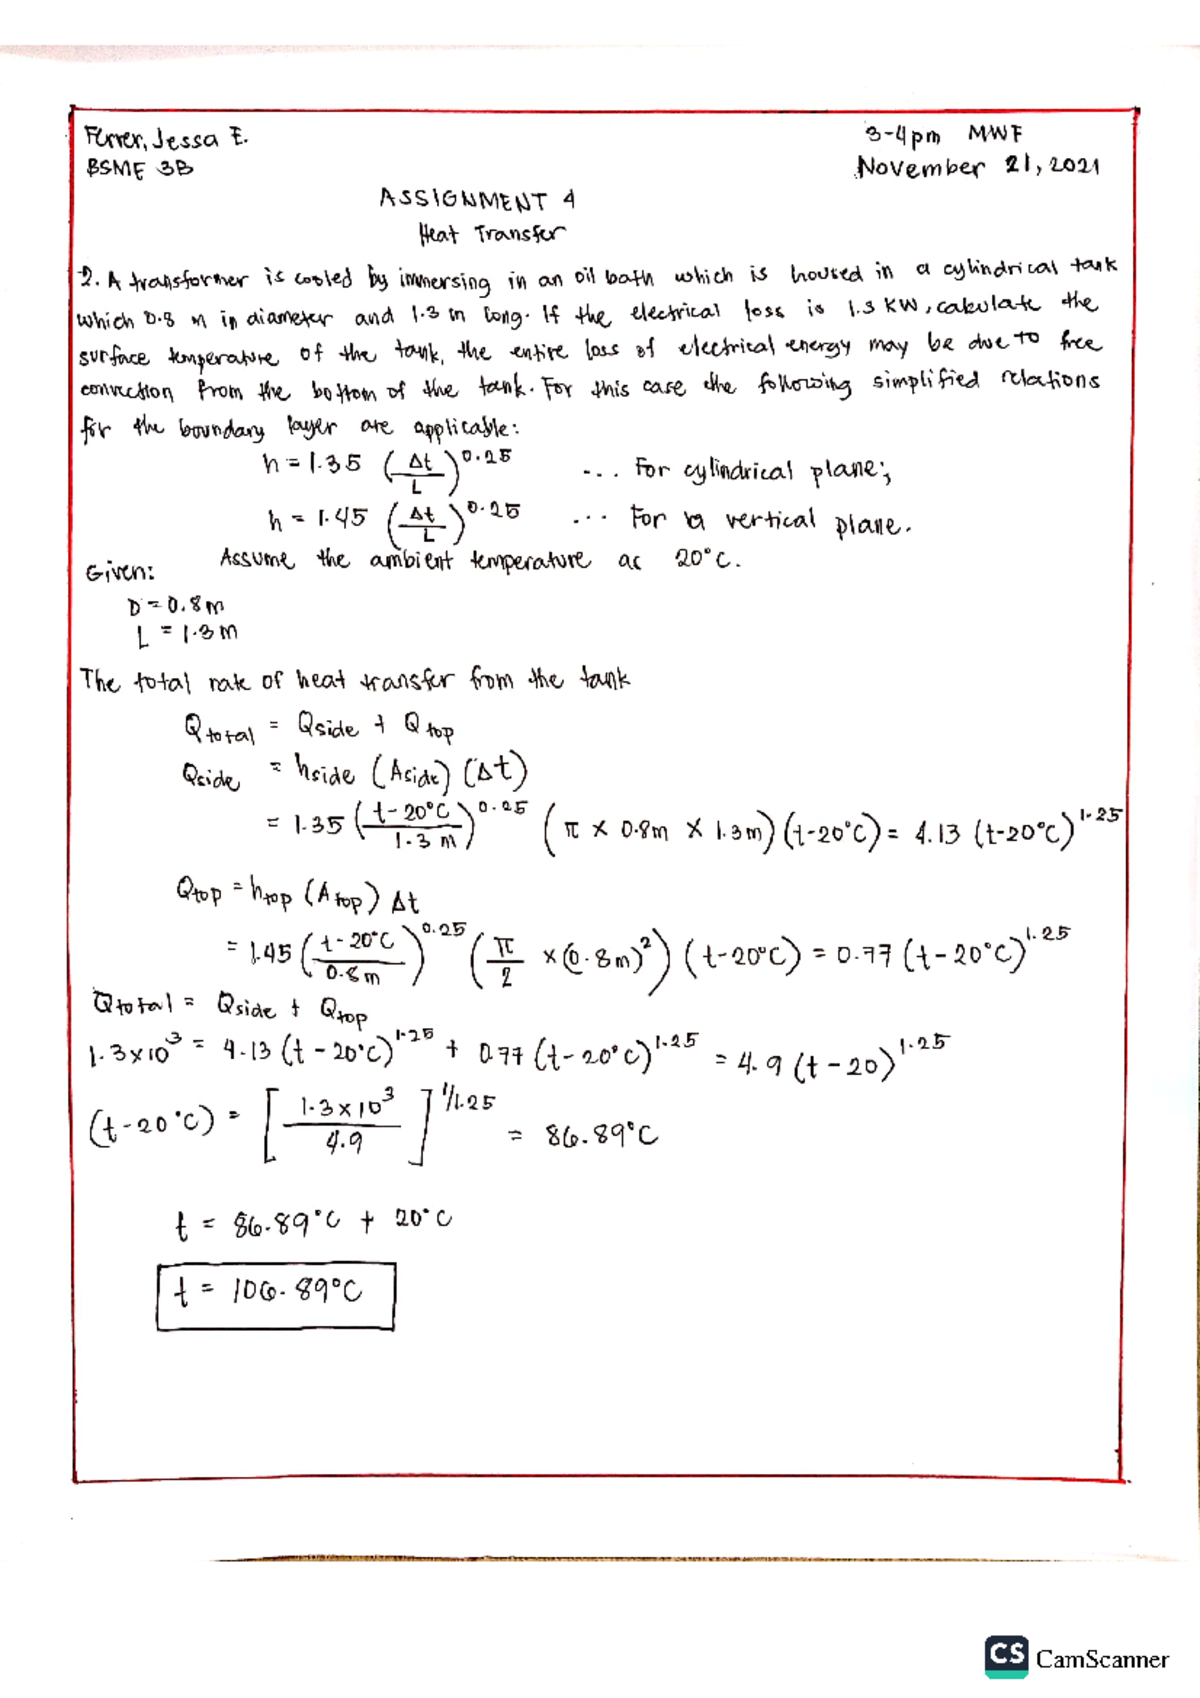 Ferrer, Jessa E.
3-4pm MWF
BSME 3B
November 21, 2021
ASSIGNMENT 4
Heat Transfer
2. A transformer is cooled by immersing in an oil bath which is housed in a cylindrical tank
which 0.8 m in diameter and 1.3 m long. If the electrical loss is 1.3 KW, calculate the
surface temperature of the tank, the entire loss of electrical energy may be due to free
convection from the bottom of the tank. For this case the following simplified relations
for the boundary layer are applicable:
h = 1.35 (Δt/L)^0.25 ... For cylindrical plane;
h = 1.45 (Δt/L)^0.25 ... For a vertical plane.
Assume the ambient temperature as 20°C.
Given:
D = 0.8 m
L = 1.3 m
The total rate of heat transfer from the tank
Qtotal = Qside + Qtop
Qside = hside (Aside) (Δt)
= 1.35 (t - 20°C / 1.3 m)^0.25 (π × 0.8m × 1.3m) (t-20°C) = 4.13 (t-20°C)^1.25
Qtop = htop (Atop) Δt
= 1.45 (t - 20°C / 0.8 m)^0.25 (π/2 × (0.8m)^2) (t-20°C) = 0.77 (t-20°C)^1.25
Qtotal = Qside + Qtop
1.3×10^3 = 4.13 (t - 20°C)^1.25 + 0.77 (t-20°C)^1.25 = 4.9 (t - 20)^1.25
(t-20°C) = [1.3×10^3 / 4.9]^1/1.25 = 86.89°C
t = 86.89°C + 20°C
t = 106.89°C
CS CamScanner